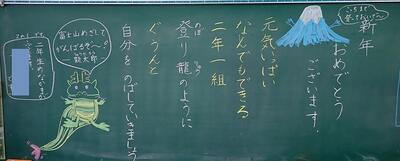 こっちまで
登っておいで〜
新年
おめでとう
ございます。
元気いっぱい
なんでもできる
二年一組
登り龍のように
ぐうんと
自分を のばしていきましょう
富士山めざして
がんばるぞ〜
龍太郎
二年生のなかまが